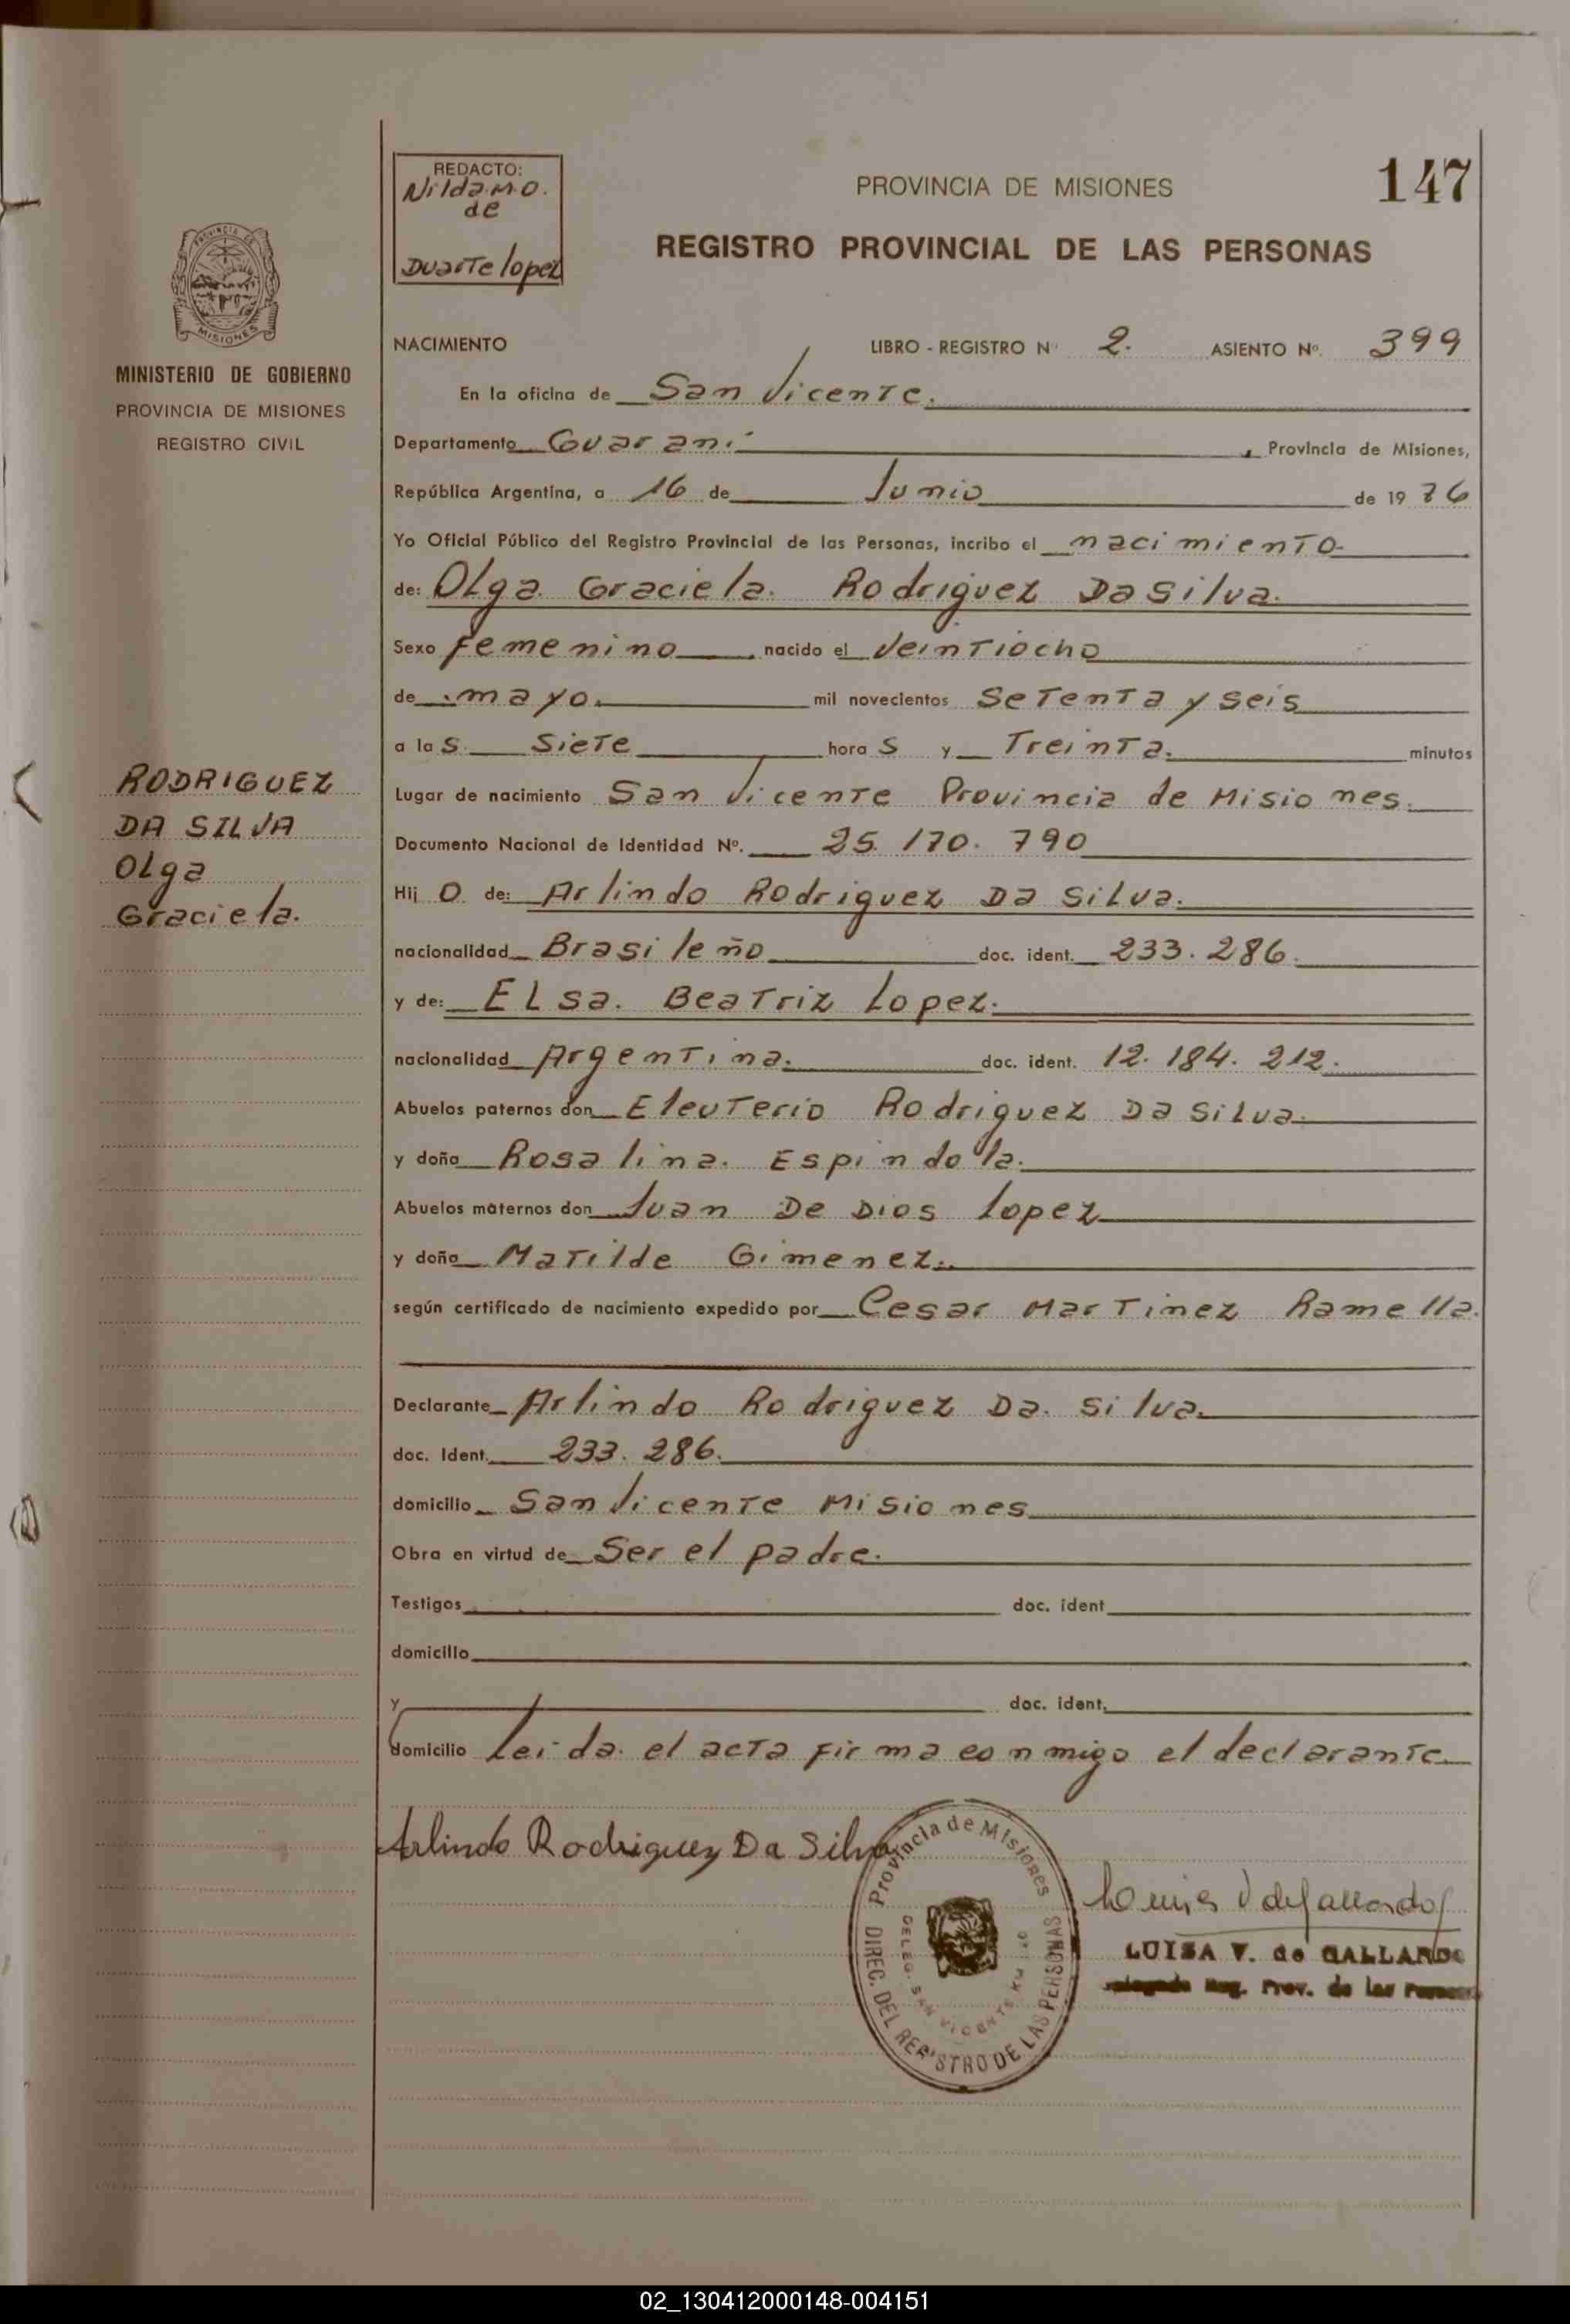 147
REDACTO:
Nilda.M.O.
de
Duarte lopez
PROVINCIA DE MISIONES
REGISTRO PROVINCIAL DE LAS PERSONAS
PROVINCIA DE
MISIONES
MINISTERIO DE GOBIERNO
PROVINCIA DE MISIONES
REGISTRO CIVIL
RODRIGUEZ
DA SILVA
Olga
Graciela.
NACIMIENTO LIBRO - REGISTRO Nº 2. ASIENTO Nº. 399
En la oficina de San Vicente.
Departamento Guaraní , Provincia de Misiones,
República Argentina, a 16 de Junio de 19 76
Yo Oficial Público del Registro Provincial de las Personas, incribo el nacimiento
de: Olga Graciela. Rodriguez Da Silva.
Sexo femenino nacido el Veintiocho
de mayo. mil novecientos Setenta y seis
a la s. Siete hora s y Treinta. minutos
Lugar de nacimiento San Vicente Provincia de Misiones.
Documento Nacional de Identidad Nº. 25.170.790
Hij o de: Arlindo Rodriguez Da Silva.
nacionalidad Brasileño doc. ident. 233.286.
y de: Elsa. Beatriz Lopez.
nacionalidad Argentina. doc. ident. 12.184.212.
Abuelos paternos don Eleuterio Rodriguez Da Silva.
y doña Rosalina. Espindola.
Abuelos maternos don Juan De Dios Lopez
y doña Matilde Gimenez.
según certificado de nacimiento expedido por Cesar Martinez Ramella.
Declarante Arlindo Rodriguez Da. Silva.
doc. Ident. 233.286.
domicilio San Vicente Misiones
Obra en virtud de Ser el padre.
Testigos doc. ident
domicilio
y doc. ident.
domicilio Leida el acta firma conmigo el declarante
Arlindo Rodriguez Da Silva
Provincia de Misiones
DIREC. DEL REGISTRO DE LAS PERSONAS
DELEG. SAN VICENTE KM
LUISA V. de GALLARDO
Reg. Prov. de las
02_130412000148-004151